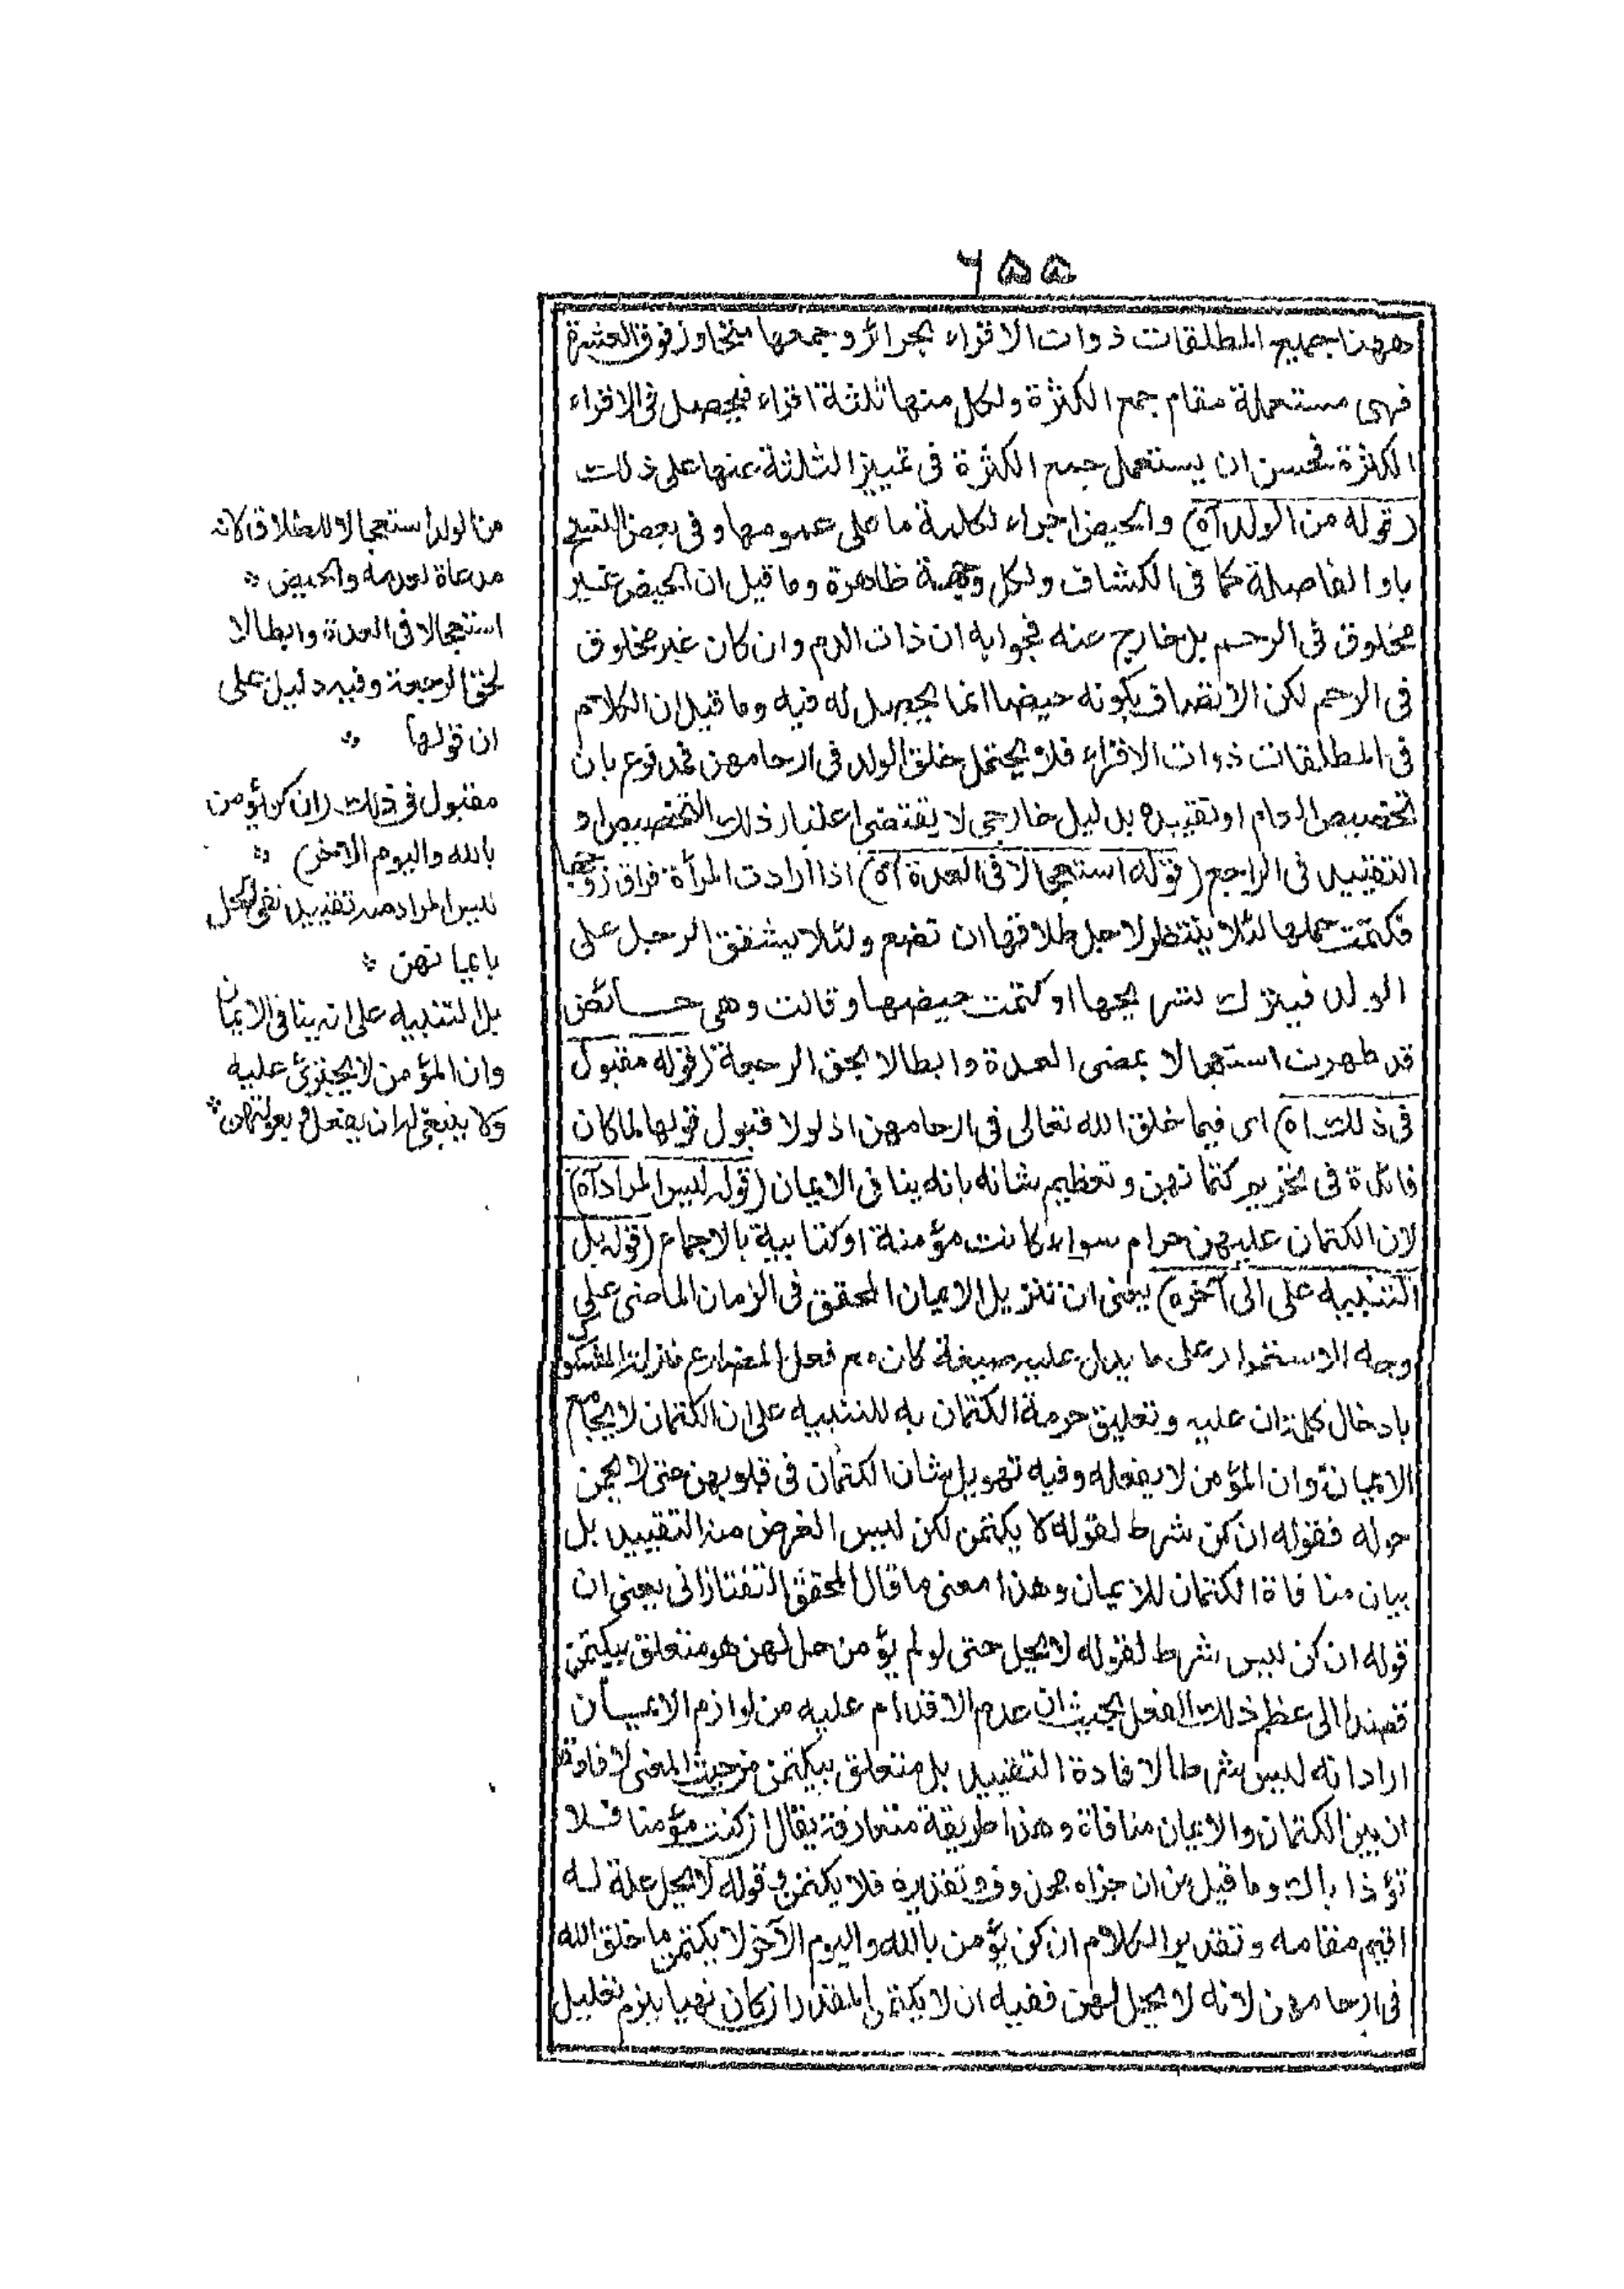 ٦٥٥
ههنا جميع المطلقات ذوات الاقراء الحرائر وجمعها متجاوز فوق العشرة
فهى مستعملة مقام جمع الكثرة ولكل منها ثلثة اقراء فيحصل فى الاقراء
الكثرة فحسن ان يستعمل جمع الكثرة فى تمييز الثلثة عنها على ذلك
(قوله من الولد آه) والحيض اجراء لكلمة ما على عمومها وفى بعض النسخ
باو الفاصلة كما فى الكشاف ولكل وجهة ظاهرة وما قيل ان الحيض غير
مخلوق فى الرحم بل خارج عنه فجوابه ان ذات الدم وان كان غير مخلوق
فى الرحم لكن الاتصاف بكونه حيضا انما يحصل له فيه وما قيل ان الكلام
فى المطلقات ذوات الاقراء فلا يحتمل خلق الولد فى ارحامهن فمدفوع بان
تخصيص العام او تقييده بدليل خارجى لا يقتضى اعتبار ذلك التخصيص او
التقييد فى الراجع (قوله استعجالا فى العدة آه) اذا ارادت المرأة فراق زوجها
فكتمت حملها لئلا ينتظر لاجل طلاقها ان تضع ولئلا يشفق الرجل على
الولد فيترك تسريحها او كتمت حيضها وقالت وهى حائض
قد طهرت استعجالا بمضى العدة وابطالا بحق الرجعة (قوله مقبول
فى ذلك اه) اى فيما خلق الله تعالى فى ارحامهن اذ لولا قبول قولها لما كان
فائدة فى تحريم كتمانهن وتعظيم شانه بانه ينافى الايمان (قوله ليس المراد آه)
لان الكتمان عليهن حرام سواء كانت مؤمنة او كتابية بالاجماع (قوله بل
التنبيه على الى آخره) يعنى ان تنزيل الايمان المحقق فى الزمان الماضى على
وجه الاستمرار على ما يدل عليه صيغة كان مع فعل المضارع منزلة المشكوك
بادخال كلمة ان عليه وتعليق حرمة الكتمان به للتنبيه على ان الكتمان لا يجامع
الايمان وان المؤمن لا يفعله وفيه تهويل شان الكتمان فى قلوبهن حتى لا يحمن
حوله فقوله ان كن شرط لقوله لا يكتمن لكن ليس الغرض منه التقييد بل
بيان منافاة الكتمان للايمان وهذا معنى ما قال المحقق التفتازانى يعنى ان
قوله ان كن ليس شرط لقوله لا يحل حتى لو لم يؤمن حل لهن هو متعلق بيكتمن
قصدا الى عظم ذلك الفعل بحيث ان عدم الاقدام عليه من لوازم الايمان
اراد انه ليس شرطا لافادة التقييد بل متعلق بيكتمن من حيث المعنى لافادته
ان بين الكتمان والايمان منافاة وهذا طريقة متعارفة يقال ان كنت مؤمنا فلا
تؤذ اباك وما قيل من ان جزاه محذوف وتقديره فلا يكتمن وقوله لا يحل علة له
اقيم مقامه وتقدير الكلام ان كن يؤمن بالله واليوم الآخر لا يكتمن ما خلق الله
فى ارحامهن لانه لا يحل لهن ففيه ان لا يكتمن المقدر ان كان نهيا يلزم تعليل
من الولد استعجالا للطلاق لانه
مدعاة والحيض
استعجالا فى العدة وابطالا
لحق الرجعة وفيه دليل على
ان قولها
مقبول فى ذلك (ان كن يؤمن
بالله واليوم الآخر)
ليس المراد منه تقييد نفى الحل
بايمانهن
بل التنبيه على انه ينافى الايمان
وان المؤمن لا يجترئ عليه
ولا ينبغى له ان يفعل وبعولتهن